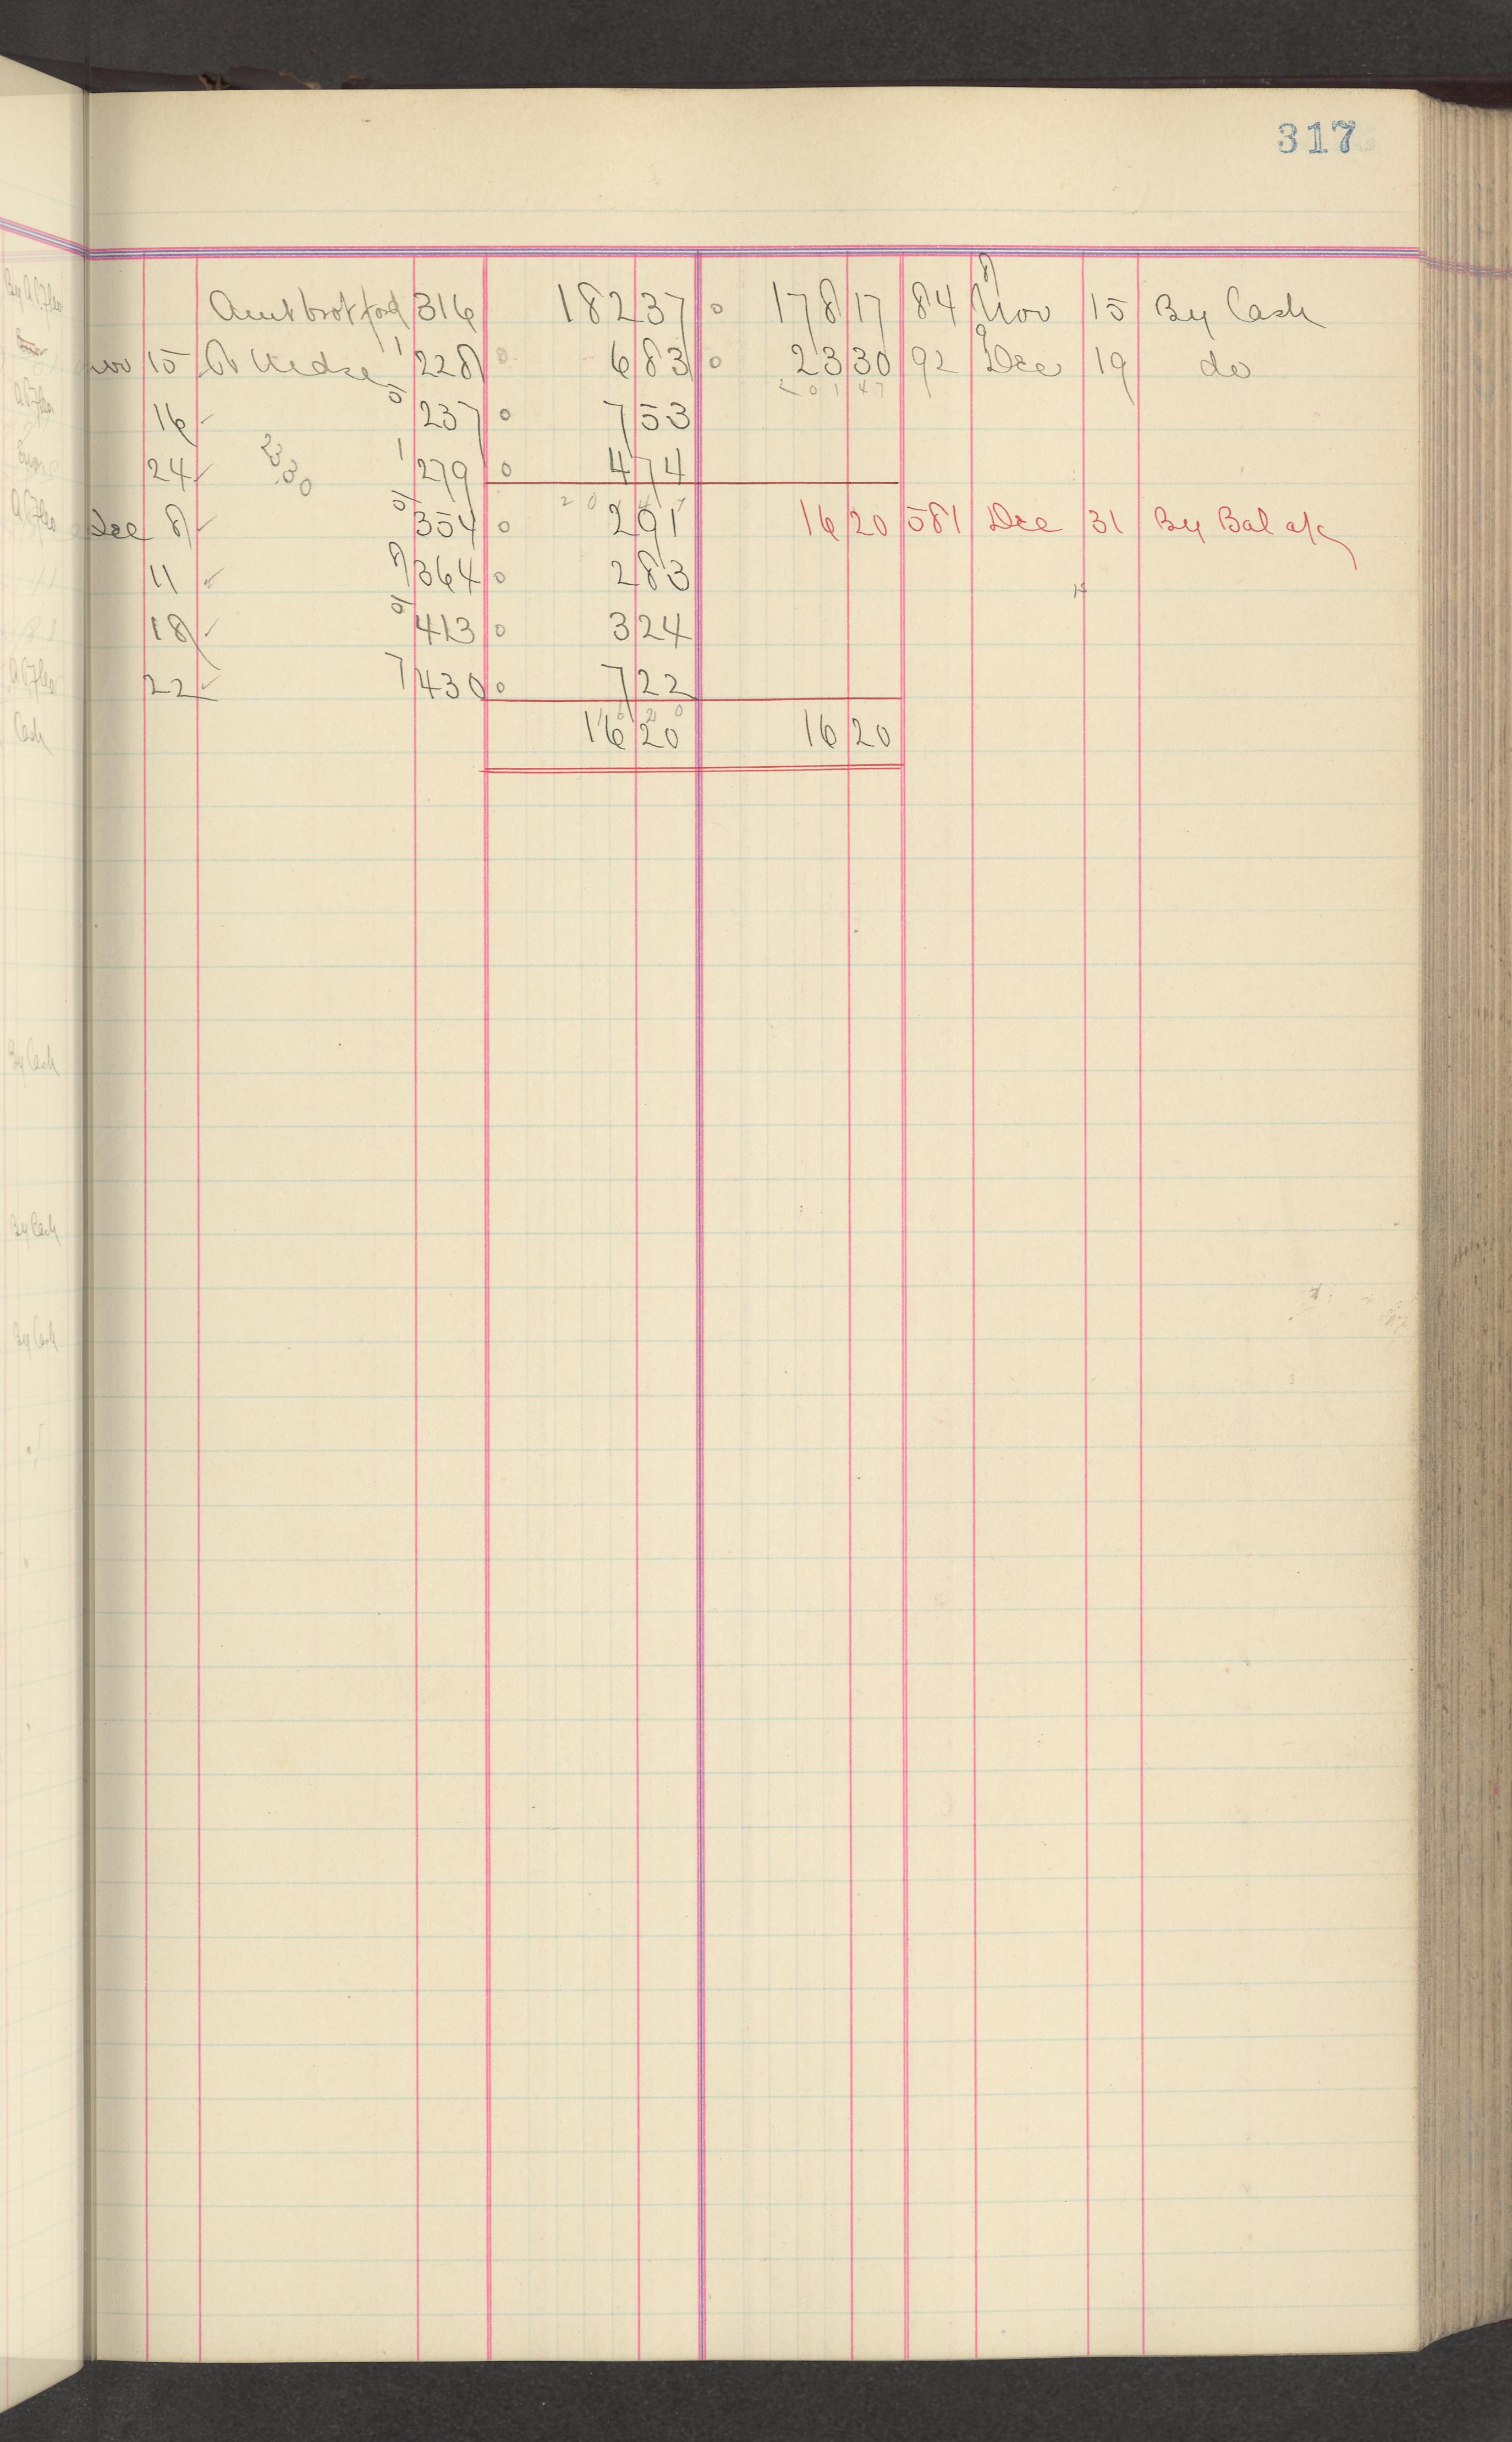 317
Amt brot ford 316 182 37 178 17 84 Nov 15 By Cash
Nov 15 To Mdse 1 228 6 83 23 30 92 Dec 19 do
16 ✓ 5 237 7 53
24 ✓ 1 279 4 74
2330
20147
Dec 8 ✓ 5 354 2 91 16 20 581 Dec 31 By Bal a/c
11 ✓ 8 364 2 83
18 ✓ 5 413 3 24
22 ✓ 7 430 7 22
16 20 16 20
By Cash
By Cash
By Cash